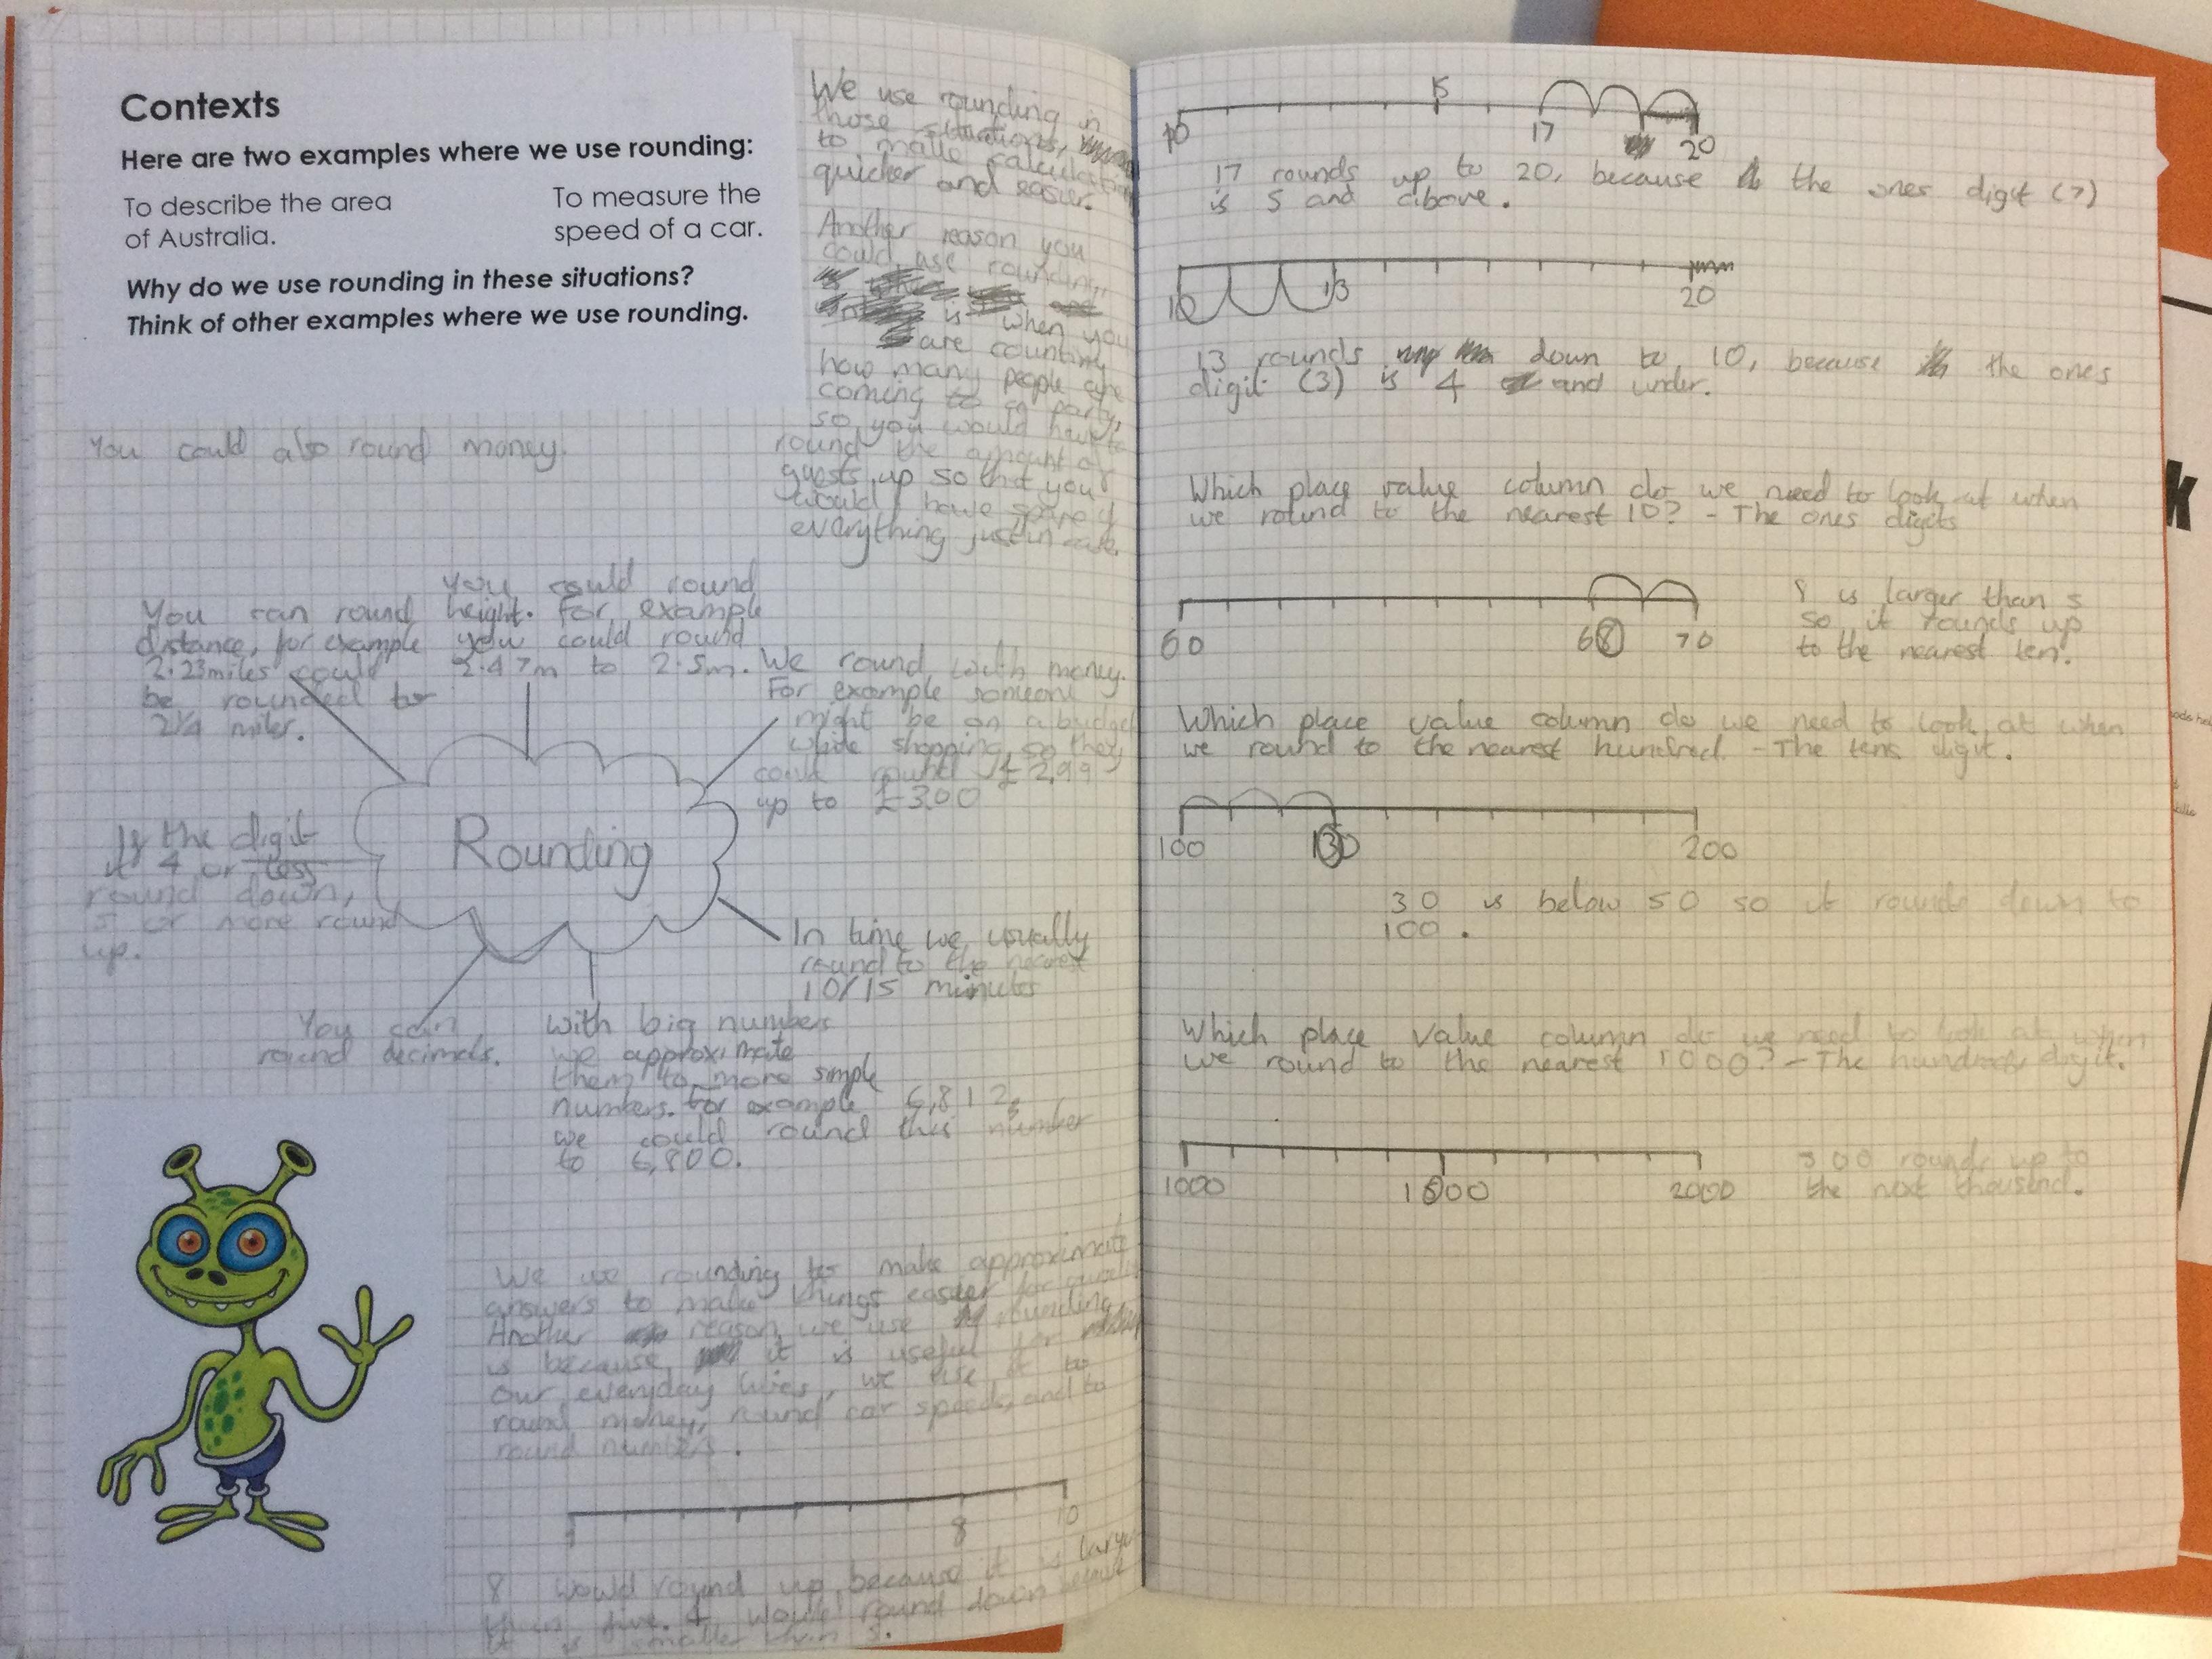 Contexts
Here are two examples where we use rounding:
To describe the area
of Australia.
To measure the
speed of a car.
Why do we use rounding in these situations?
Think of other examples where we use rounding.
We use rounding in
those situations,
to make calculations
quicker and easier.
Another reason you
could use rounding,
is when you
are counting
how many people are
coming to a party,
so you would have to
round the amount of
guests up so that you
would have spare of
everything just in case.
You could also round money.
You can round
distance, for example
2.23miles could
be rounded to
2 1/4 miles.
You could round
height. For example
you could round
2.47m to 2.5m.
We round with money.
For example someone
might be on a budget
while shopping, so they
could round £2.99
up to £3.00
Rounding
If the digit
is 4 or less
round down,
5 or more round
up.
In time we usually
round to the nearest
10/15 minutes
You can
round decimals.
With big numbers
we approximate
them to more simple
numbers. For example 6,812,
we could round this number
to 6,800.
We use rounding to make approximate
answers to make things easier for
Another reason we use rounding
is because it is useful for
our everyday lives, we use it to
round money, round car speeds, and to
round numbers.
1 8 10
8 would round up, because it is larger
than five. 4 would round down because
it is smaller than 5.
15
10 17 20
17 rounds up to 20, because the ones digit (7)
is 5 and above.
10 13 20
13 rounds down to 10, because the ones
digit (3) is 4 and under.
Which place value column do we need to look at when
we round to the nearest 10? - The ones digits
60 68 70
8 is larger than 5
so it rounds up
to the nearest ten.
Which place value column do we need to look at when
we round to the nearest hundred. - The tens digit.
100 130 200
30 is below 50 so it rounds down to
100.
Which place value column do we need to look at when
we round to the nearest 1000? - The hundreds digit.
1000 1500 2000
500 rounds up to
the next thousand.
k